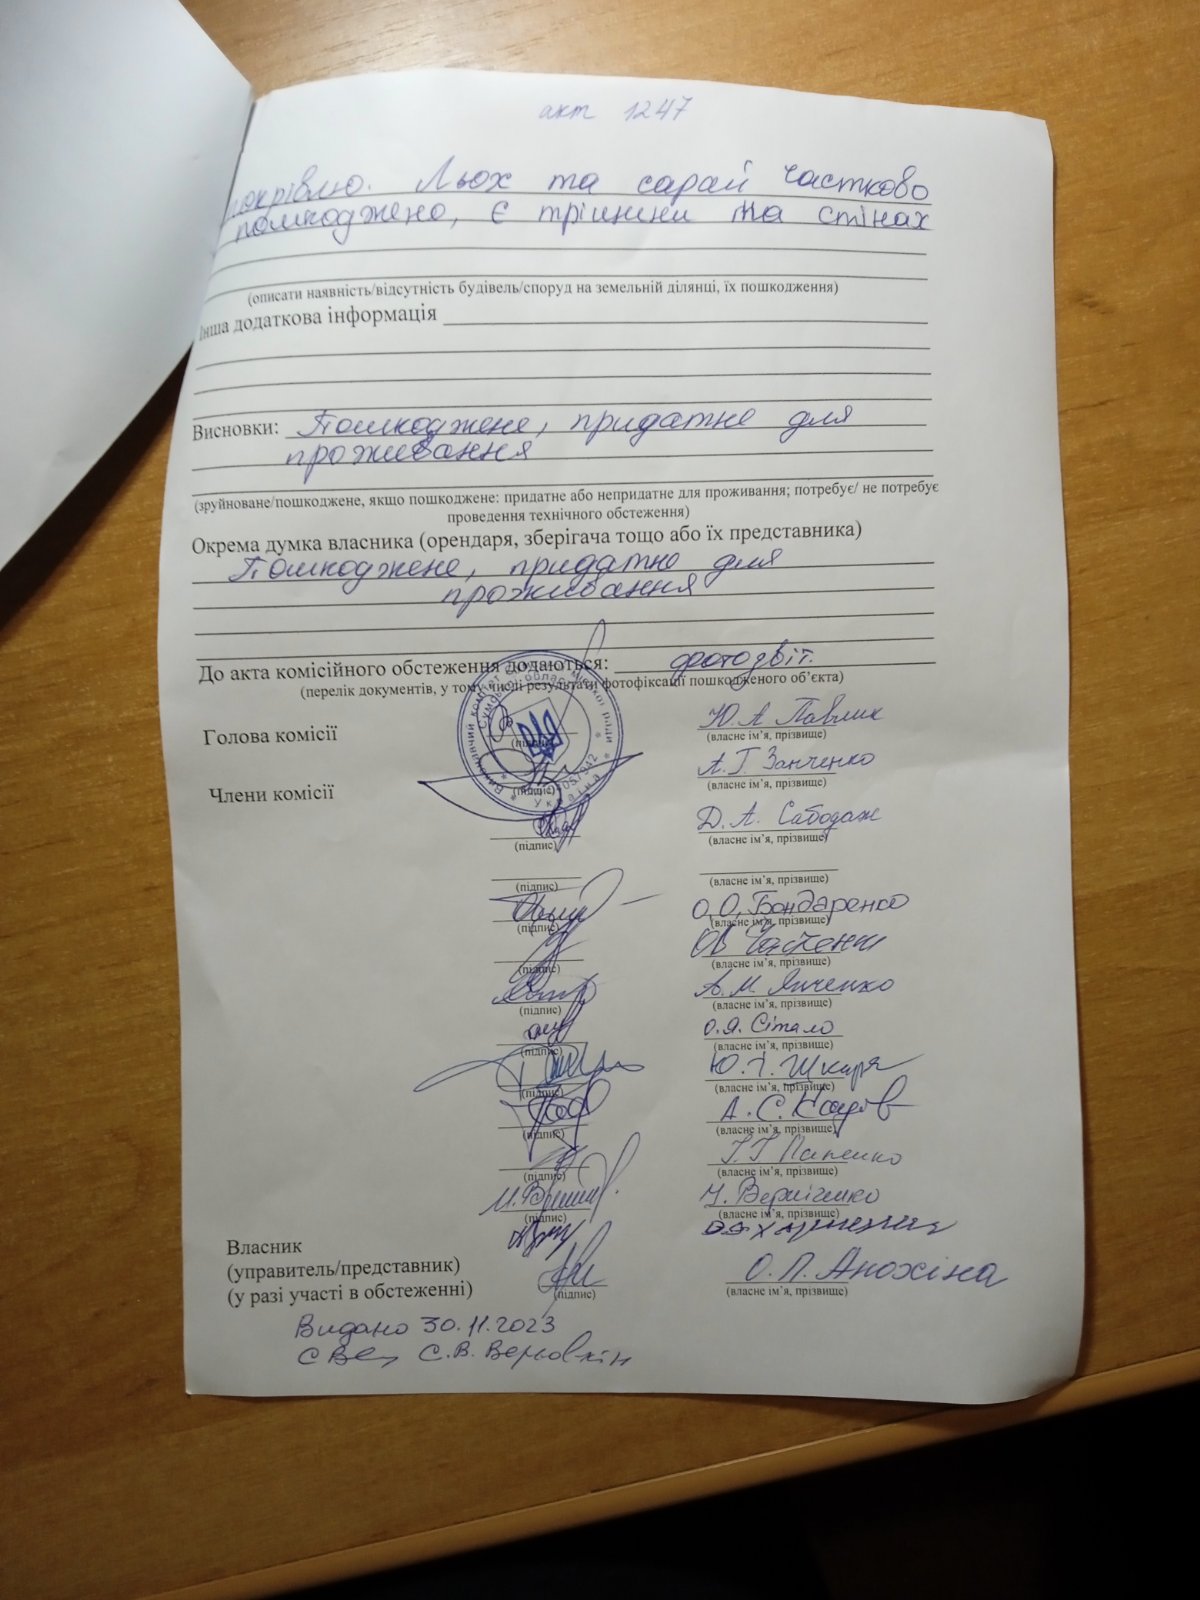 акт 1247
покрівлю. Льох та сарай частково
пошкоджено, є тріщини на стінах
(описати наявність/відсутність будівель/споруд на земельній ділянці, їх пошкодження)
Інша додаткова інформація
Висновки: Пошкоджене, придатне для
проживання
(зруйноване/пошкоджене, якщо пошкоджене: придатне або непридатне для проживання; потребує/ не потребує
проведення технічного обстеження)
Окрема думка власника (орендаря, зберігача тощо або їх представника)
Пошкоджене, придатне для
проживання
До акта комісійного обстеження додаються: фотозвіт.
(перелік документів, у тому числі результати фотофіксації пошкодженого об'єкта)
Голова комісії (підпис) Ю.А Павлик
(власне ім'я, прізвище)
А.Г. Занченко
Члени комісії (підпис) (власне ім'я, прізвище)
Д.А. Сабодаж
(підпис) (власне ім'я, прізвище)
(підпис) (власне ім'я, прізвище)
О.О. Бондаренко
(підпис) (власне ім'я, прізвище)
(підпис) (власне ім'я, прізвище)
А.М. Янченко
(підпис) (власне ім'я, прізвище)
О.Я. Сітало
(підпис) (власне ім'я, прізвище)
Шкаря
(підпис) (власне ім'я, прізвище)
А.С.
(підпис) (власне ім'я, прізвище)
(підпис) (власне ім'я, прізвище)
(підпис) (власне ім'я, прізвище)
Власник
(управитель/представник)
О.П. Анохіна
(у разі участі в обстеженні) (підпис) (власне ім'я, прізвище)
Видано 30.11.2023
С.В. Верьовкін